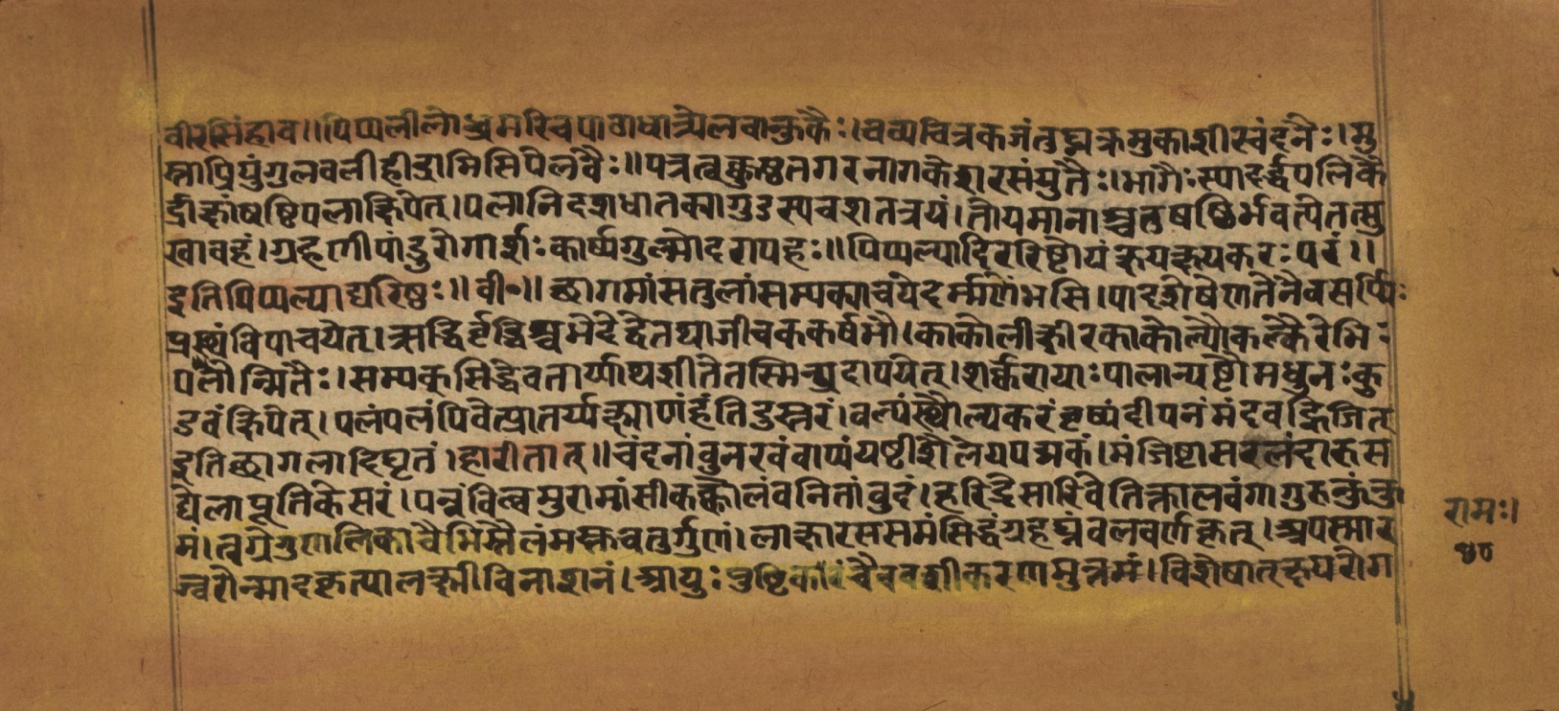 वीरसिंहाव॥पिप्पलीलोध्रमरिचपाठाधात्र्येलवालुकैः।चव्यचित्रकजंतुघ्नक्रमुकोशीरचंदनैः।मु
स्ताप्रियुंगुलवलीहरिद्रामिसिपेलवैः॥पत्रत्वक्कुष्ठतगरनागकेशरसंयुतैः।भागैःस्यादर्द्धपलिकै
र्द्राक्षांषष्टिपलाक्षिपेत्।पलानिदशधातक्यागुडस्यचशतत्रयं।तोयमानाश्चतुषष्ठिर्भवत्येतत्सु
खावहं।ग्रहणीपांडुरोगार्शःकार्ष्यगुल्मोदरापहः॥पिप्पल्यादिररिष्टोयंक्षयक्षयकरःपरं॥
इतिपिप्पल्याद्यरिष्टः॥वी०॥छागमांसतुलांसम्यक्पाचयेदर्म्मणेंभसि।पादशेषेणतेनैवसर्प्पिः
प्रस्थंविपाचयेत्।ऋद्धिर्वृद्धिश्चमेदेद्वेतथाजीवककर्षभौ।काकोलीक्षीरकाकोल्यौकल्कैरेभिः
पलोन्मितैः।सम्यक्सिद्धेवतार्य्याथशीतेतस्मिन्प्रदापयेत्।शर्क्करायाःपालान्यष्टौमधुनःकु
डवंक्षिपेत्।पलंपलंपिवेत्प्रातर्य्यक्ष्माणंहंतिदुस्तरं।वल्यंस्थौल्यकरंवृष्यंदीपनंमंदवह्निजित्
इतिछागलादिघृतं।हारीतात्॥चंदनांवुनखंवाप्यंयष्टीशैलेयपद्मकं।मंजिष्टासरलंदारुस
द्येलापूतिकेसरं।पत्रंविल्वमुरामांसीकक्कोलंवनितांवुदं।हरिद्रेसारिवेतिक्तालवंगागुरुकुंकु
मं।त्वग्रेणुणालिकाचैभिस्तैलंमस्तुचतुर्गुणं।लाक्षारससमंसिद्धंग्रहघ्नंवलवर्णकृत्।अपस्मार
ज्वरोन्मादकृत्यालक्ष्मीविनाशनं।आयुःपुष्टिकरंचैववशीकरणमुत्तमं।विशेषात्क्षयरोग
रामः।
४०